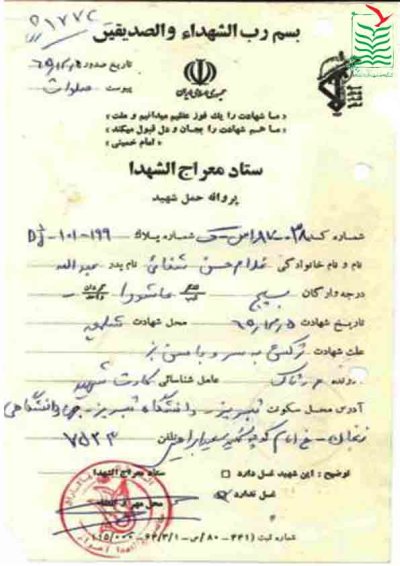 بسم رب الشهداء والصدیقین
۲۱۷۷۲
تاریخ صدور ۶۵٫۱۲٫۵
پیوست صلوات
جمهوری اسلامی ایران
« ما شهادت را یك فوز عظیم میدانیم و ملت »
« ما هم شهادت را بجان و دل قبول میکند »
« امام خمینی »
ستاد معراج الشهدا
پروانه حمل شهید
شماره کد شماره پلاک ۱۹۹-۱۰۱-
نام و نام خانوادگی غلام حسن شفائی نام پدر عبداله
درجه و ارگان بسیج عاشورا
تاریخ شهادت ۶۵٫۱۲٫۵ محل شهادت شلمچه
علت شهادت ترکش به سر و باسن
رونده عامل شناسائی کارت شهید
آدرس محل سکونت تبریز - دانشگاه تبریز - جهاد دانشگاهی
زنجان - خ امام کوچه شهید تلفن ۷۵۲۳
توضیح : این شهید غسل دارد □ ستاد معراج الشهدا
غسل ندارد محل مهر و امضاء
شماره ثبت (۴۴۱-۸۰/س-۶۴/۳/۱ /۱۱۵/۰۰۰)